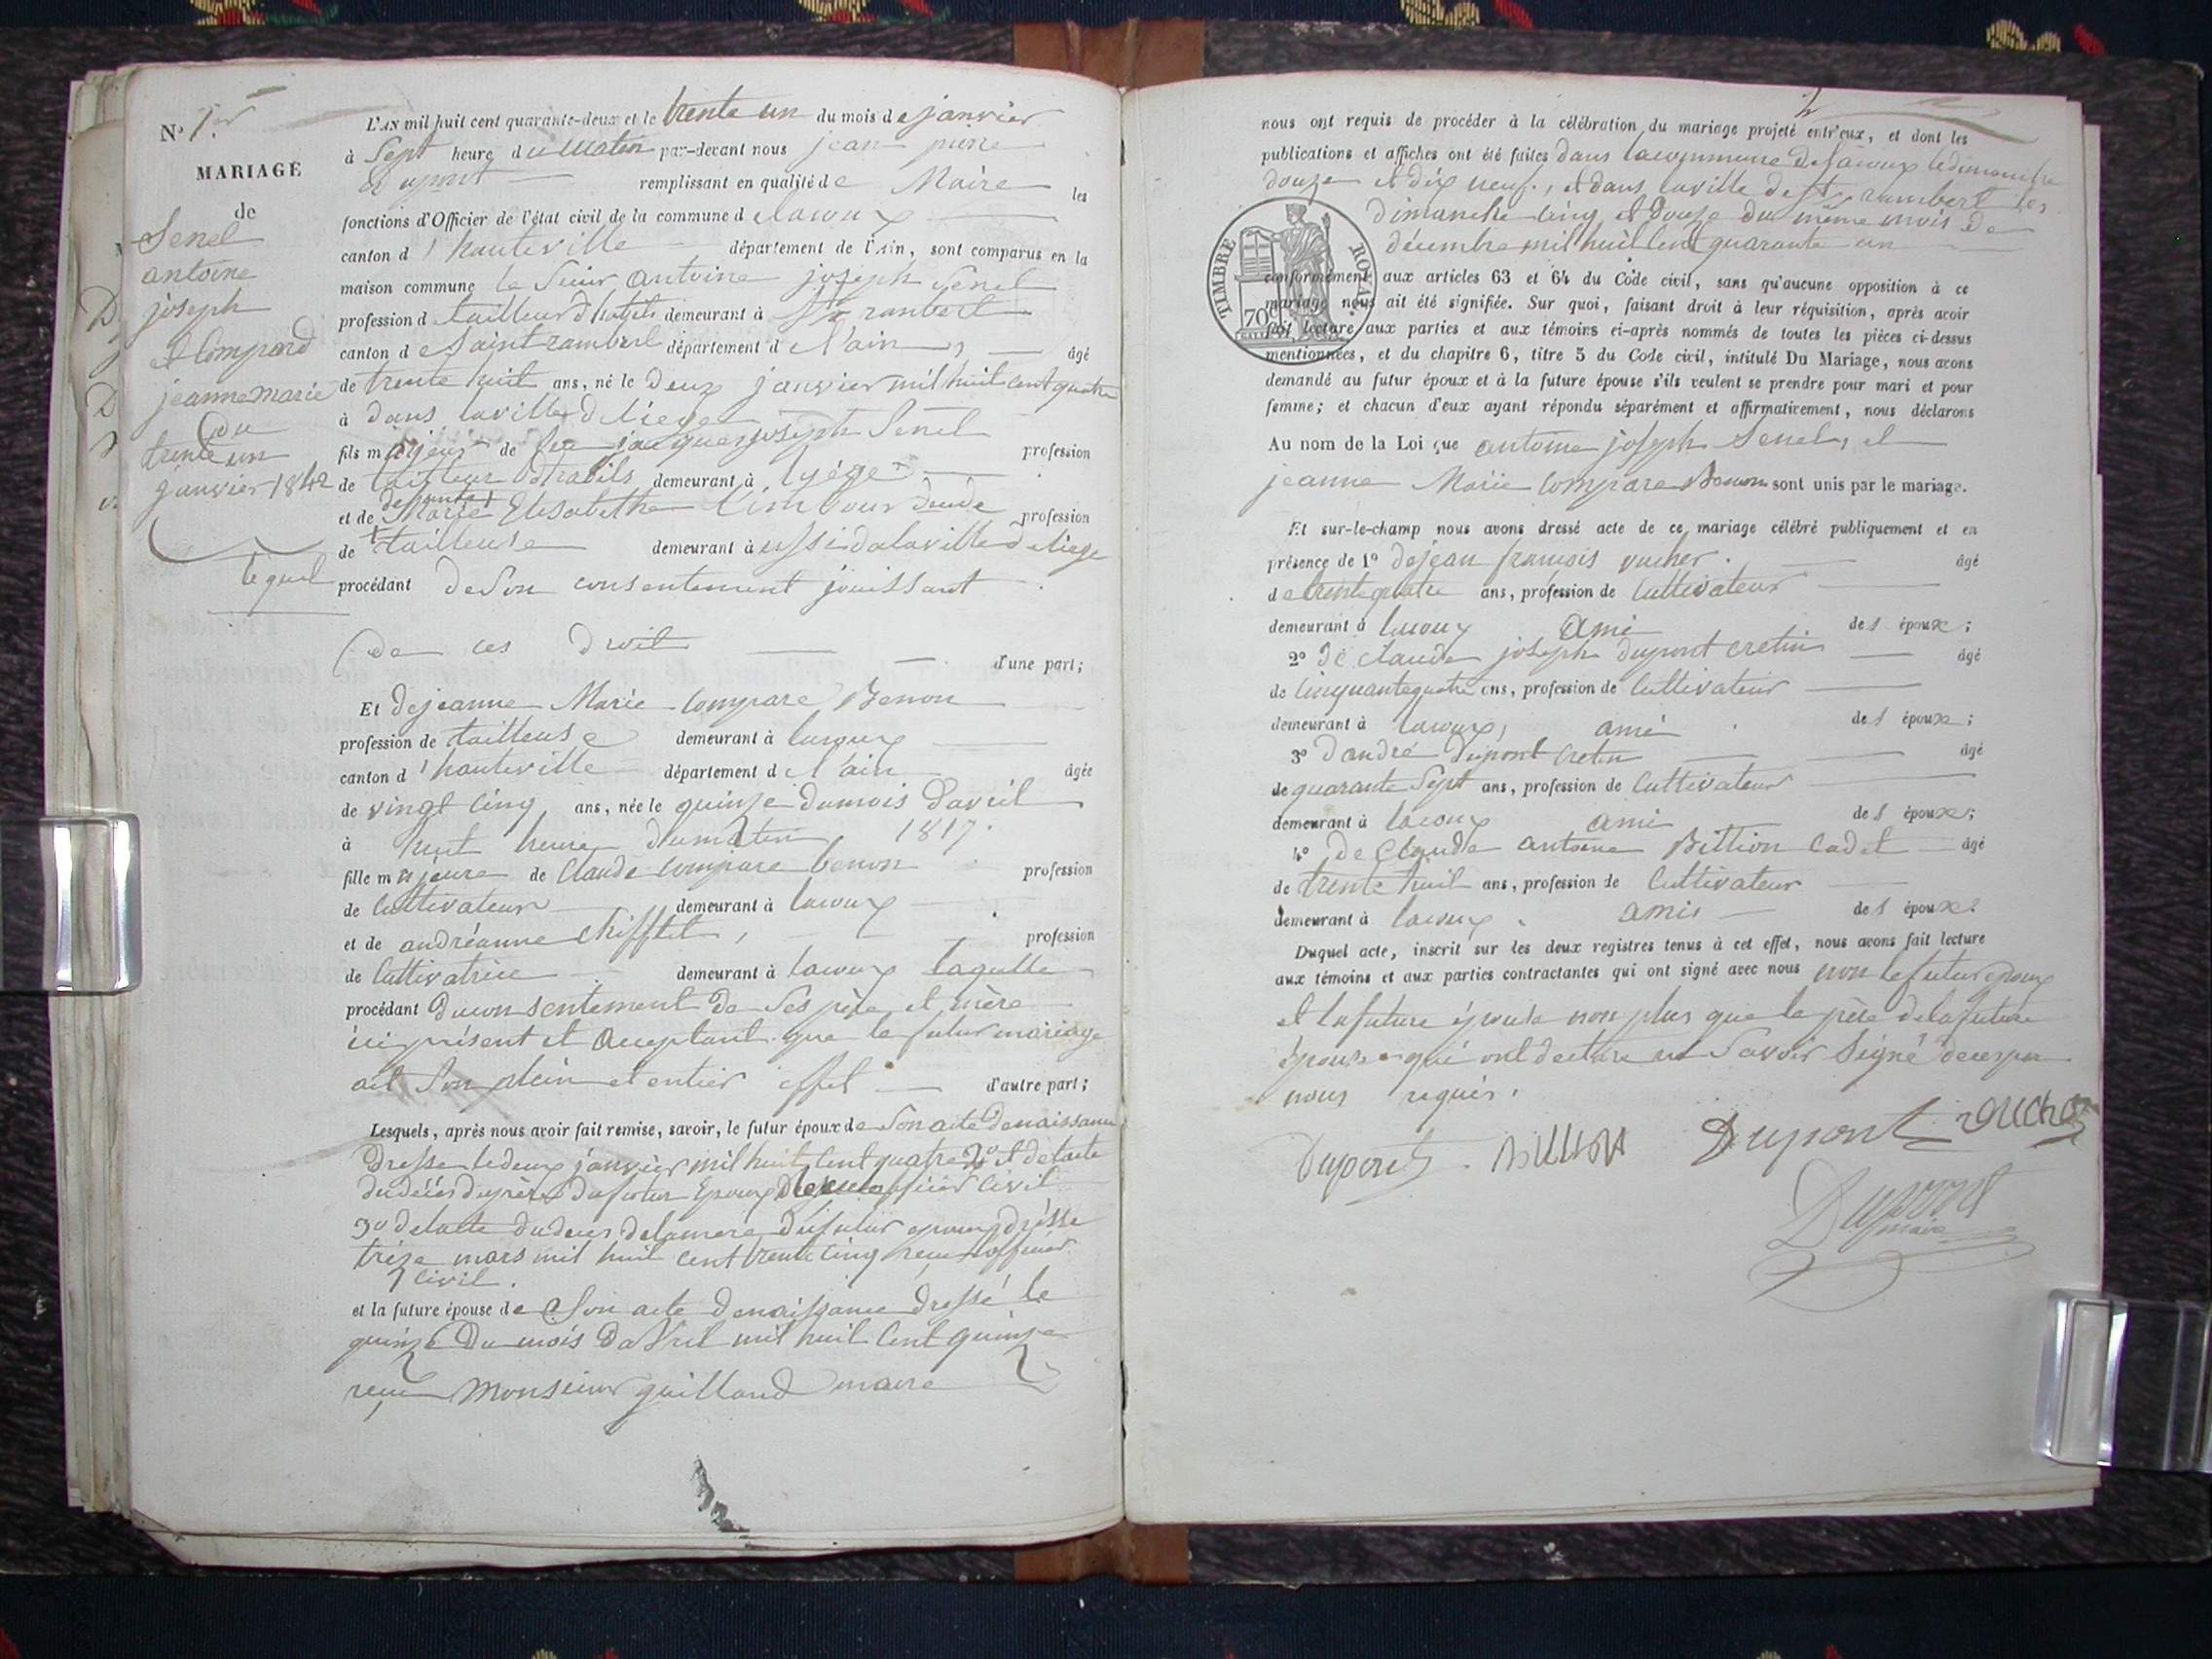 N° 1er
MARIAGE
de
Senel
antoine
joseph
et Compard
jeanne marie
du
trente un
janvier 1842
L'AN mil huit cent quarante-deux et le trente un du mois de janvier
à Sept heure du matin par-devant nous jean pierre
Dupont remplissant en qualité de Maire les
fonctions d'Officier de l'état civil de la commune d Lacoux
canton d'hauteville département de l'Ain, sont comparus en la
maison commune le Sieur antoine joseph Senel
profession d tailleur d'habits demeurant à St rambert
canton de Saint rambert département de l'ain, âgé
de trente huit ans, né le deux janvier mil huit cent quatre
à dans la ville de liege
fils majeur de feu jacques joseph Senel profession
de tailleur d'habits demeurant à lyége
et de defunte Marie Elisabethe profession
de tailleuse demeurant à ussi da la ville de liege
lequel procédant de son consentement jouissant
de ces droit d'une part;
Et de jeanne Marie Compare Benon
profession de tailleuse demeurant à lacoux
canton d'hauteville département de l'ain âgée
de vingt cinq ans, née le quinze du mois d'avril
à huit heure du matin 1817.
fille majeure de Claude compare benon profession
de Cultivateur demeurant à lacoux
et de andréanne Chifflet, profession
de Cultivatrice demeurant à lacoux laquelle
procédant du consentement de ses père et mère
ici présent et acceptant que le futur mariage
ait son plein et entier effet d'autre part;
Lesquels, après nous avoir fait remise, savoir, le futur époux de Son acte de naissance
Dresse le deux janvier mil huit cent quatre 2° et de l'acte
du décès du père du futur Epoux officier civil
3° de l'acte du deces de la mere du futur epoux dresse
treize mars mil huit cent trente cinq officier
civil.
et la future épouse de Son acte de naissance dressé le
quinze du mois d'avril mil huit cent quinze
reçu Monsieur guilland maire
2
nous ont requis de procéder à la célébration du mariage projeté entr'eux, et dont les
publications et affiches ont été faites dans la commune de lacoux le dimanche
douze et dix neuf, et dans la ville de St rambert les
dimanche cinq et douze du même mois de
décembre mil huit cent quarante un
TIMBRE ROYAL
70c
conformément aux articles 63 et 64 du Code civil, sans qu'aucune opposition à ce
mariage nous ait été signifiée. Sur quoi, faisant droit à leur réquisition, après avoir
fait lecture aux parties et aux témoins ci-après nommés de toutes les pièces ci-dessus
mentionnées, et du chapitre 6, titre 5 du Code civil, intitulé Du Mariage, nous avons
demandé au futur époux et à la future épouse s'ils veulent se prendre pour mari et pour
femme; et chacun d'eux ayant répondu séparément et affirmativement, nous déclarons
Au nom de la Loi que antoine joseph Senel, et
jeanne Marie Compare Benon sont unis par le mariage.
Et sur-le-champ nous avons dressé acte de ce mariage célébré publiquement et en
présence de 1° de jean françois vucher. âgé
de trente quatre ans, profession de Cultivateur
demeurant à lacoux ami des époux;
2° de Claude joseph dupont cretin âgé
de Cinquante quatre ans, profession de Cultivateur
demeurant à lacoux, ami des époux;
3° d'andré Dupont Cretin âgé
de quarante Sept ans, profession de Cultivateur
demeurant à lacoux ami des époux;
4° de Claude antoine Billion Cadet âgé
de trente huit ans, profession de Cultivateur
demeurant à lacoux. amis des époux.
Duquel acte, inscrit sur les deux registres tenus à cet effet, nous avons fait lecture
aux témoins et aux parties contractantes qui ont signé avec nous non le futur époux
et la future épouse non plus que le père de la future
épouse qui ont declare ne Savoir Signé de ces par
nous requis.
Dupont Billion Dupont vucher
Dupont
maire